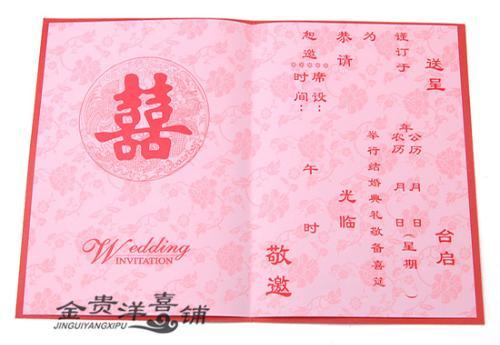 囍
Wedding
INVITATION
送呈 台启
谨订于 年 公历 月 日(星期 )
农历 月 日
为 举行结婚典礼敬备喜筵
恭请 光临
恕邀 敬邀
席设:
时间: 午 时
金贵洋喜铺
JINGUIYANGXIPU